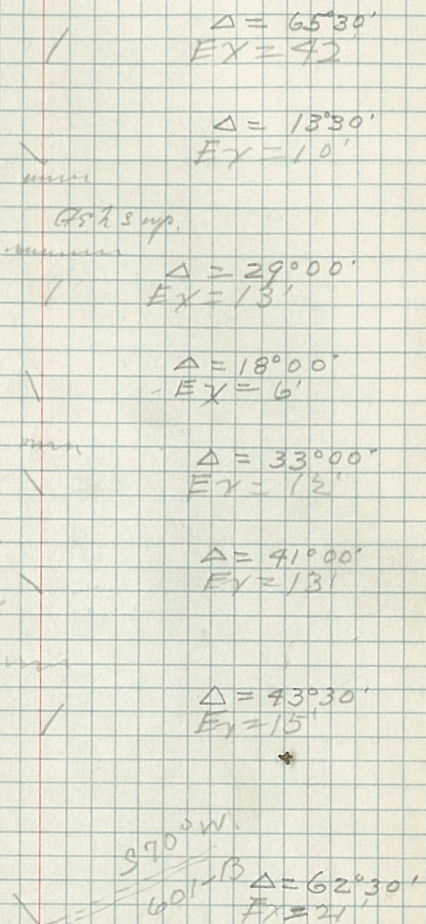 Δ = 65°30'
Ex = 42
Δ = 13°30'
Ex = 10'
Δ = 29°00'
Ex = 13'
Δ = 18°00'
Ex = 6'
Δ = 33°00'
Ex = 12'
Δ = 41°00'
Ex = 13'
Δ = 43°30'
Ex = 15'
S70°W.
601-B
Δ = 62°30'
Ex = 21'